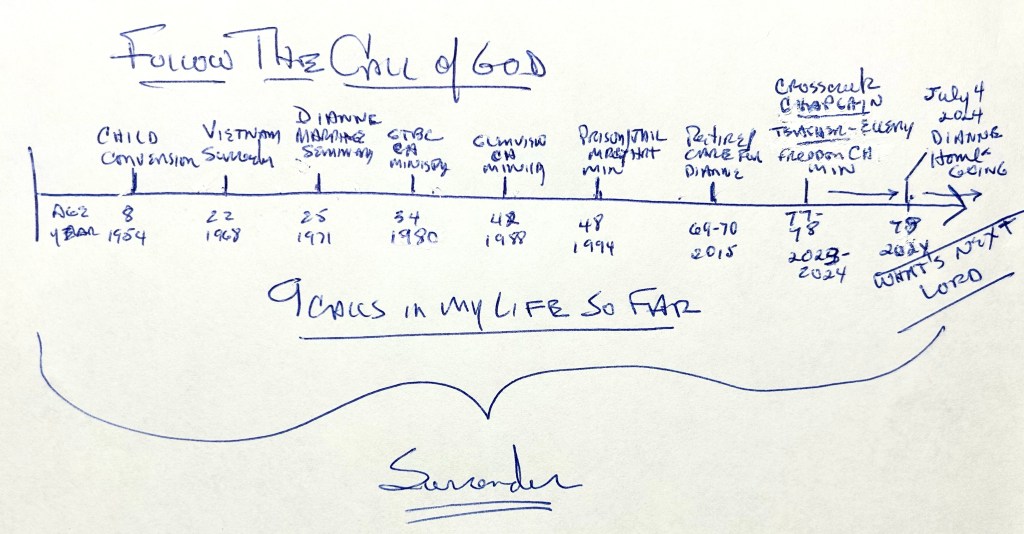 FOLLOW THE CALL of GOD
CHILD
CONVERSION
VIETNAM
DIANNE
MARRIAGE
SEMINARY
STBC
CH
MINISTRY
CH
PRISON/JAIL
MIN
RETIRE/
CARE FOR
DIANNE
CROSSWALK
CHAPLAIN
TEACHER-ELLERY
FREEDOM CH
MIN
July 4
2024
DIANNE
Home-
GOING
AGE 8 22 25 34 42 48 69-70 77-78 78
YEAR 1954 1968 1971 1980 1988 1994 2015 2023-2024 2024
WHAT'S NEXT
LORD
9 CALLS in My LIFE So FAR
Surrender